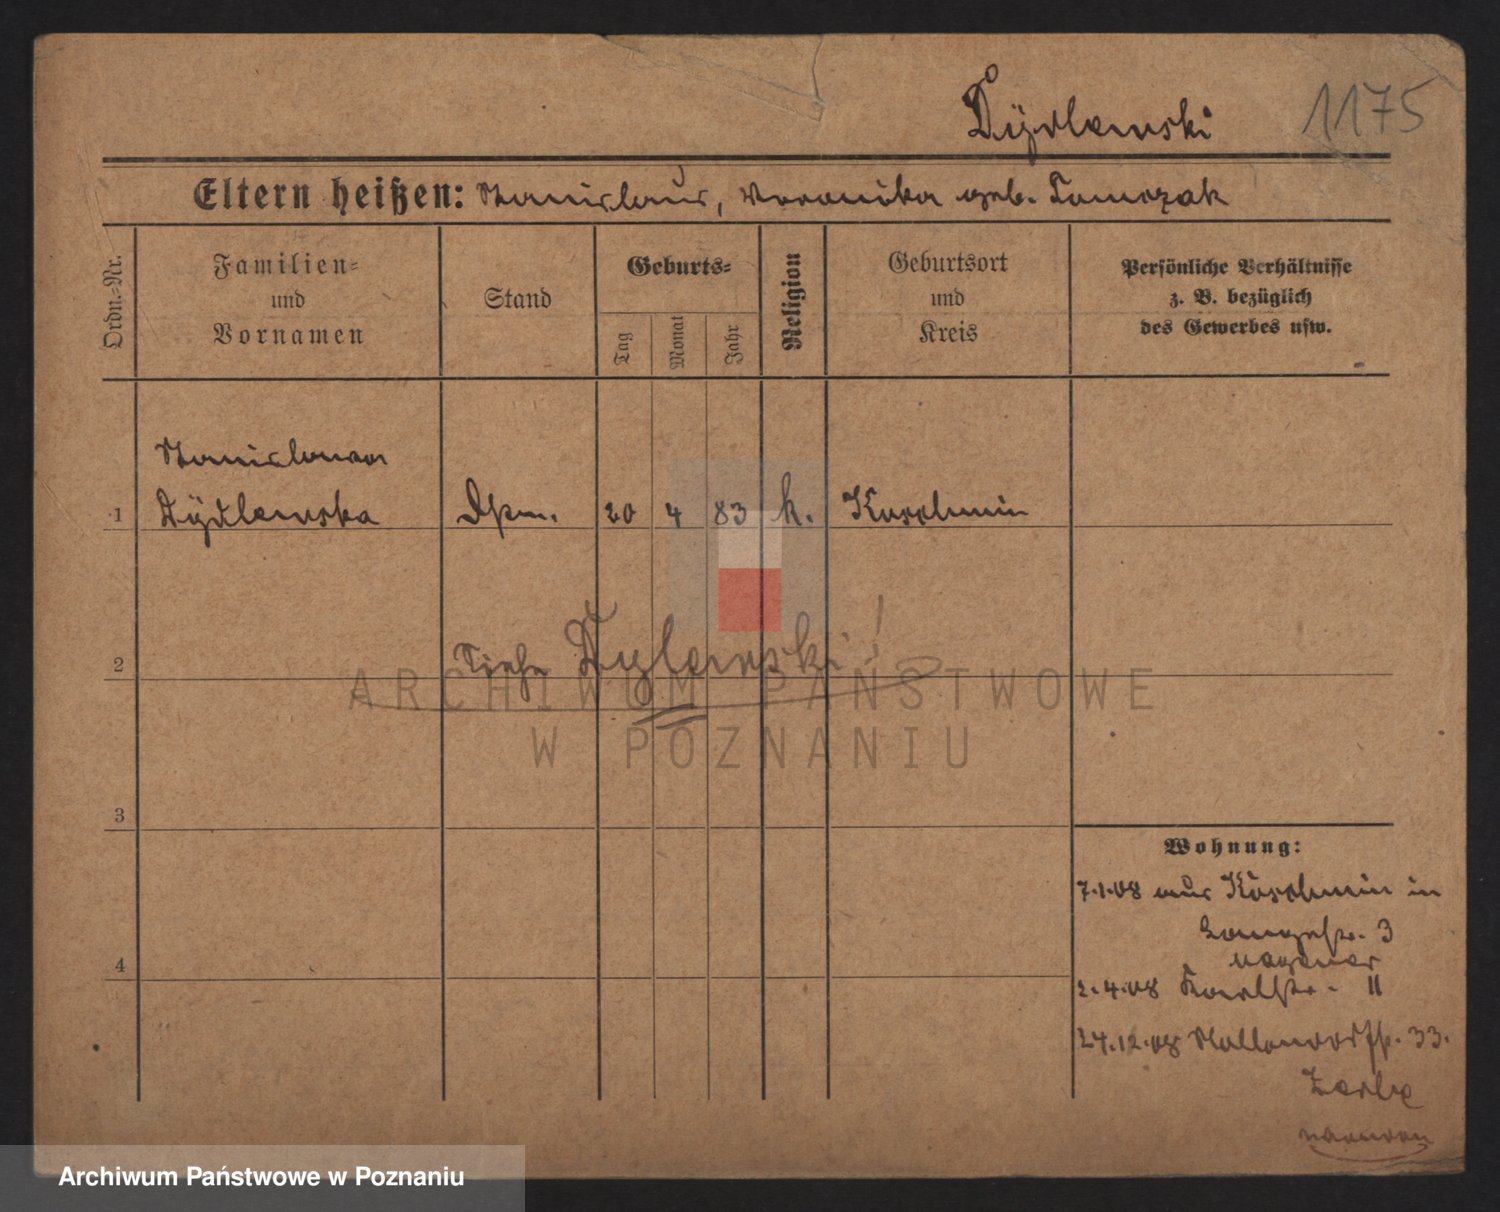 Dÿdlewski 1175
Eltern heißen: Stanislaus, Veronika geb. Tomczak
Ordn.-Nr.
Familien-
und
Vornamen
Stand
Geburts-
Tag
Monat
Jahr
Religion
Geburtsort
und
Kreis
Persönliche Verhältnisse
z. B. bezüglich
des Gewerbes usw.
Stanislawa
1 Dÿdlewska 20 4 83 k. Koschmin
2 Siehe Dylewski!
3
4
Wohnung:
7.1.08 aus Koschmin in
Langestr. 3
Wagener
2.4.08 Karlstr. 11
24.12.08 33.
ARCHIWUM PAŃSTWOWE
W POZNANIU
Archiwum Państwowe w Poznaniu